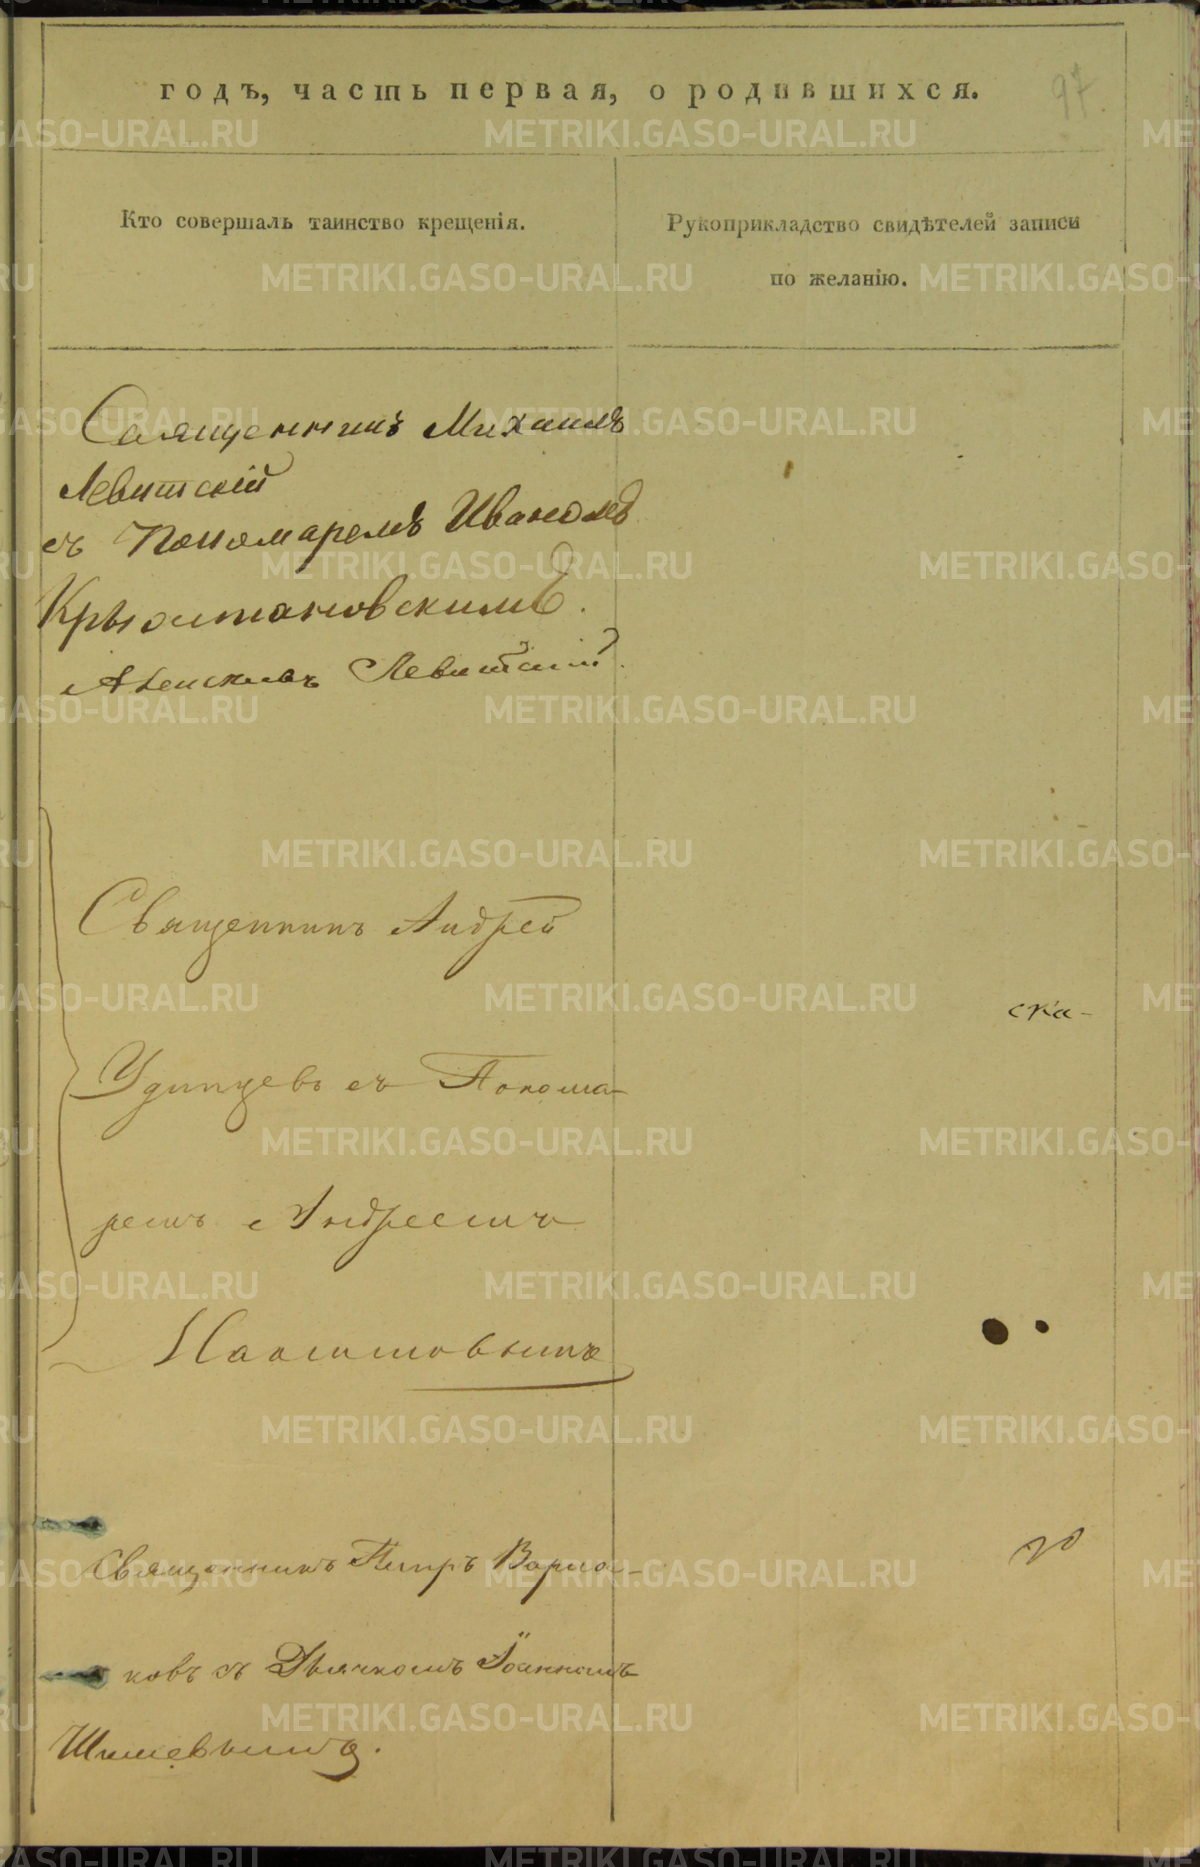 годъ, часть первая, о родившихся.
97.
Кто совершалъ таинство крещенія.
Рукоприкладство свидѣтелей записи
по желанію.
Священникъ Михаилъ
Левитскій
съ Пономаремъ Иваномъ
Левитскій
Священникъ Андрей
ска-
Удинцевъ съ Понома-
ремъ Андреемъ
Священникъ Петръ Варла-
ковъ съ Дьячкомъ Іоанномъ
METRIKI.GASO-URAL.RU